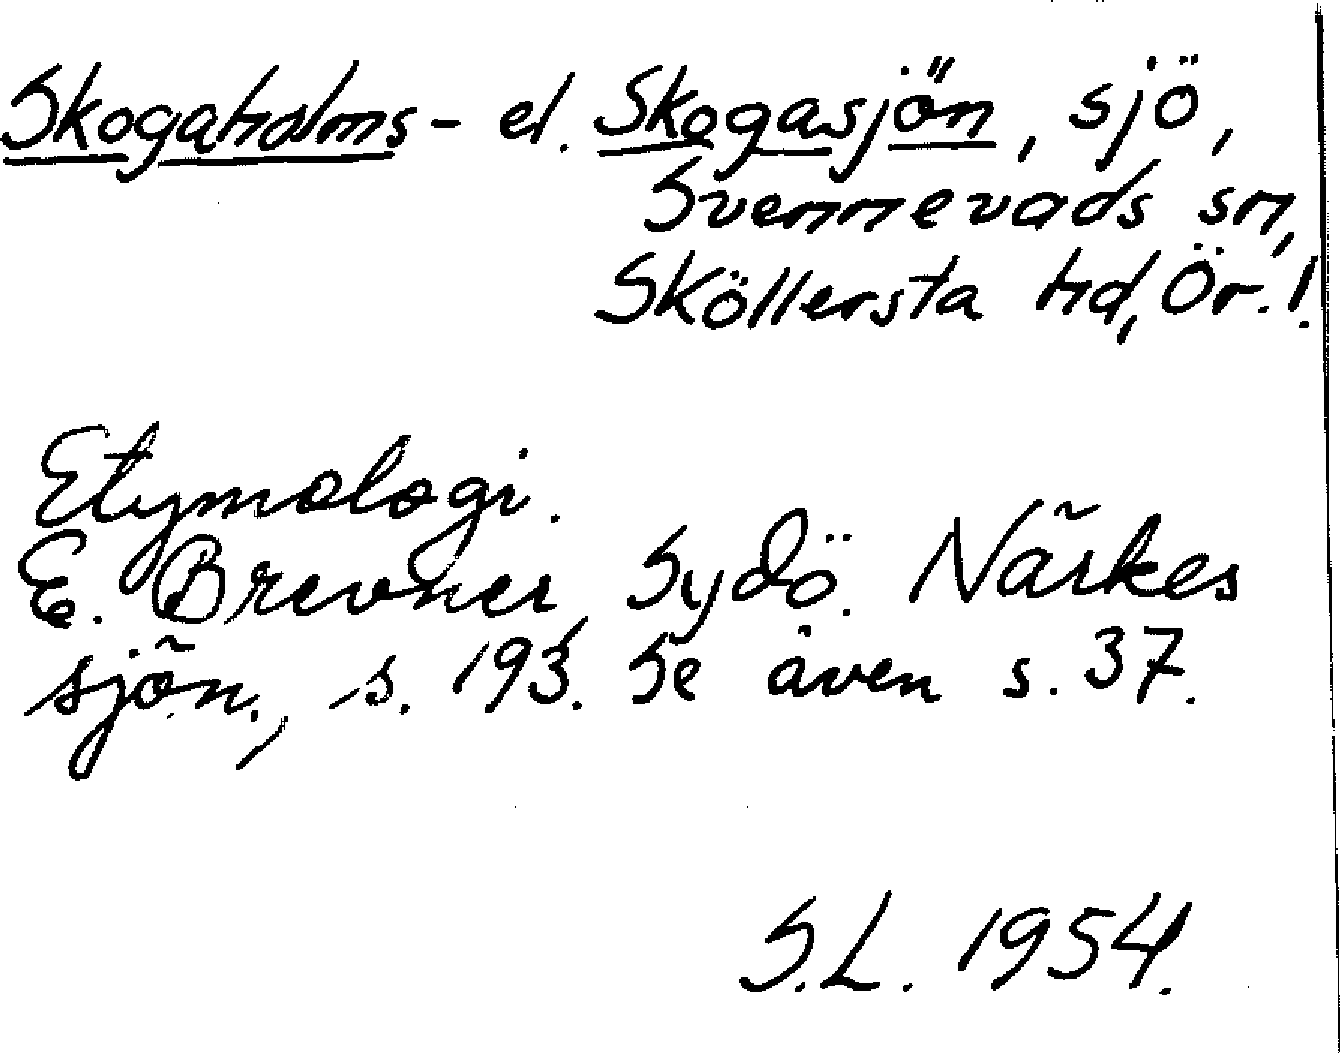 Skogaholms- el. Skogasjön, sjö,
Svennevads sn,
Sköllersta hd, Ör. l.
Etymologi.
E. Brevner, Sydö. Närkes
sjön., s. 193. Se även s. 37.
S.L. 1954.